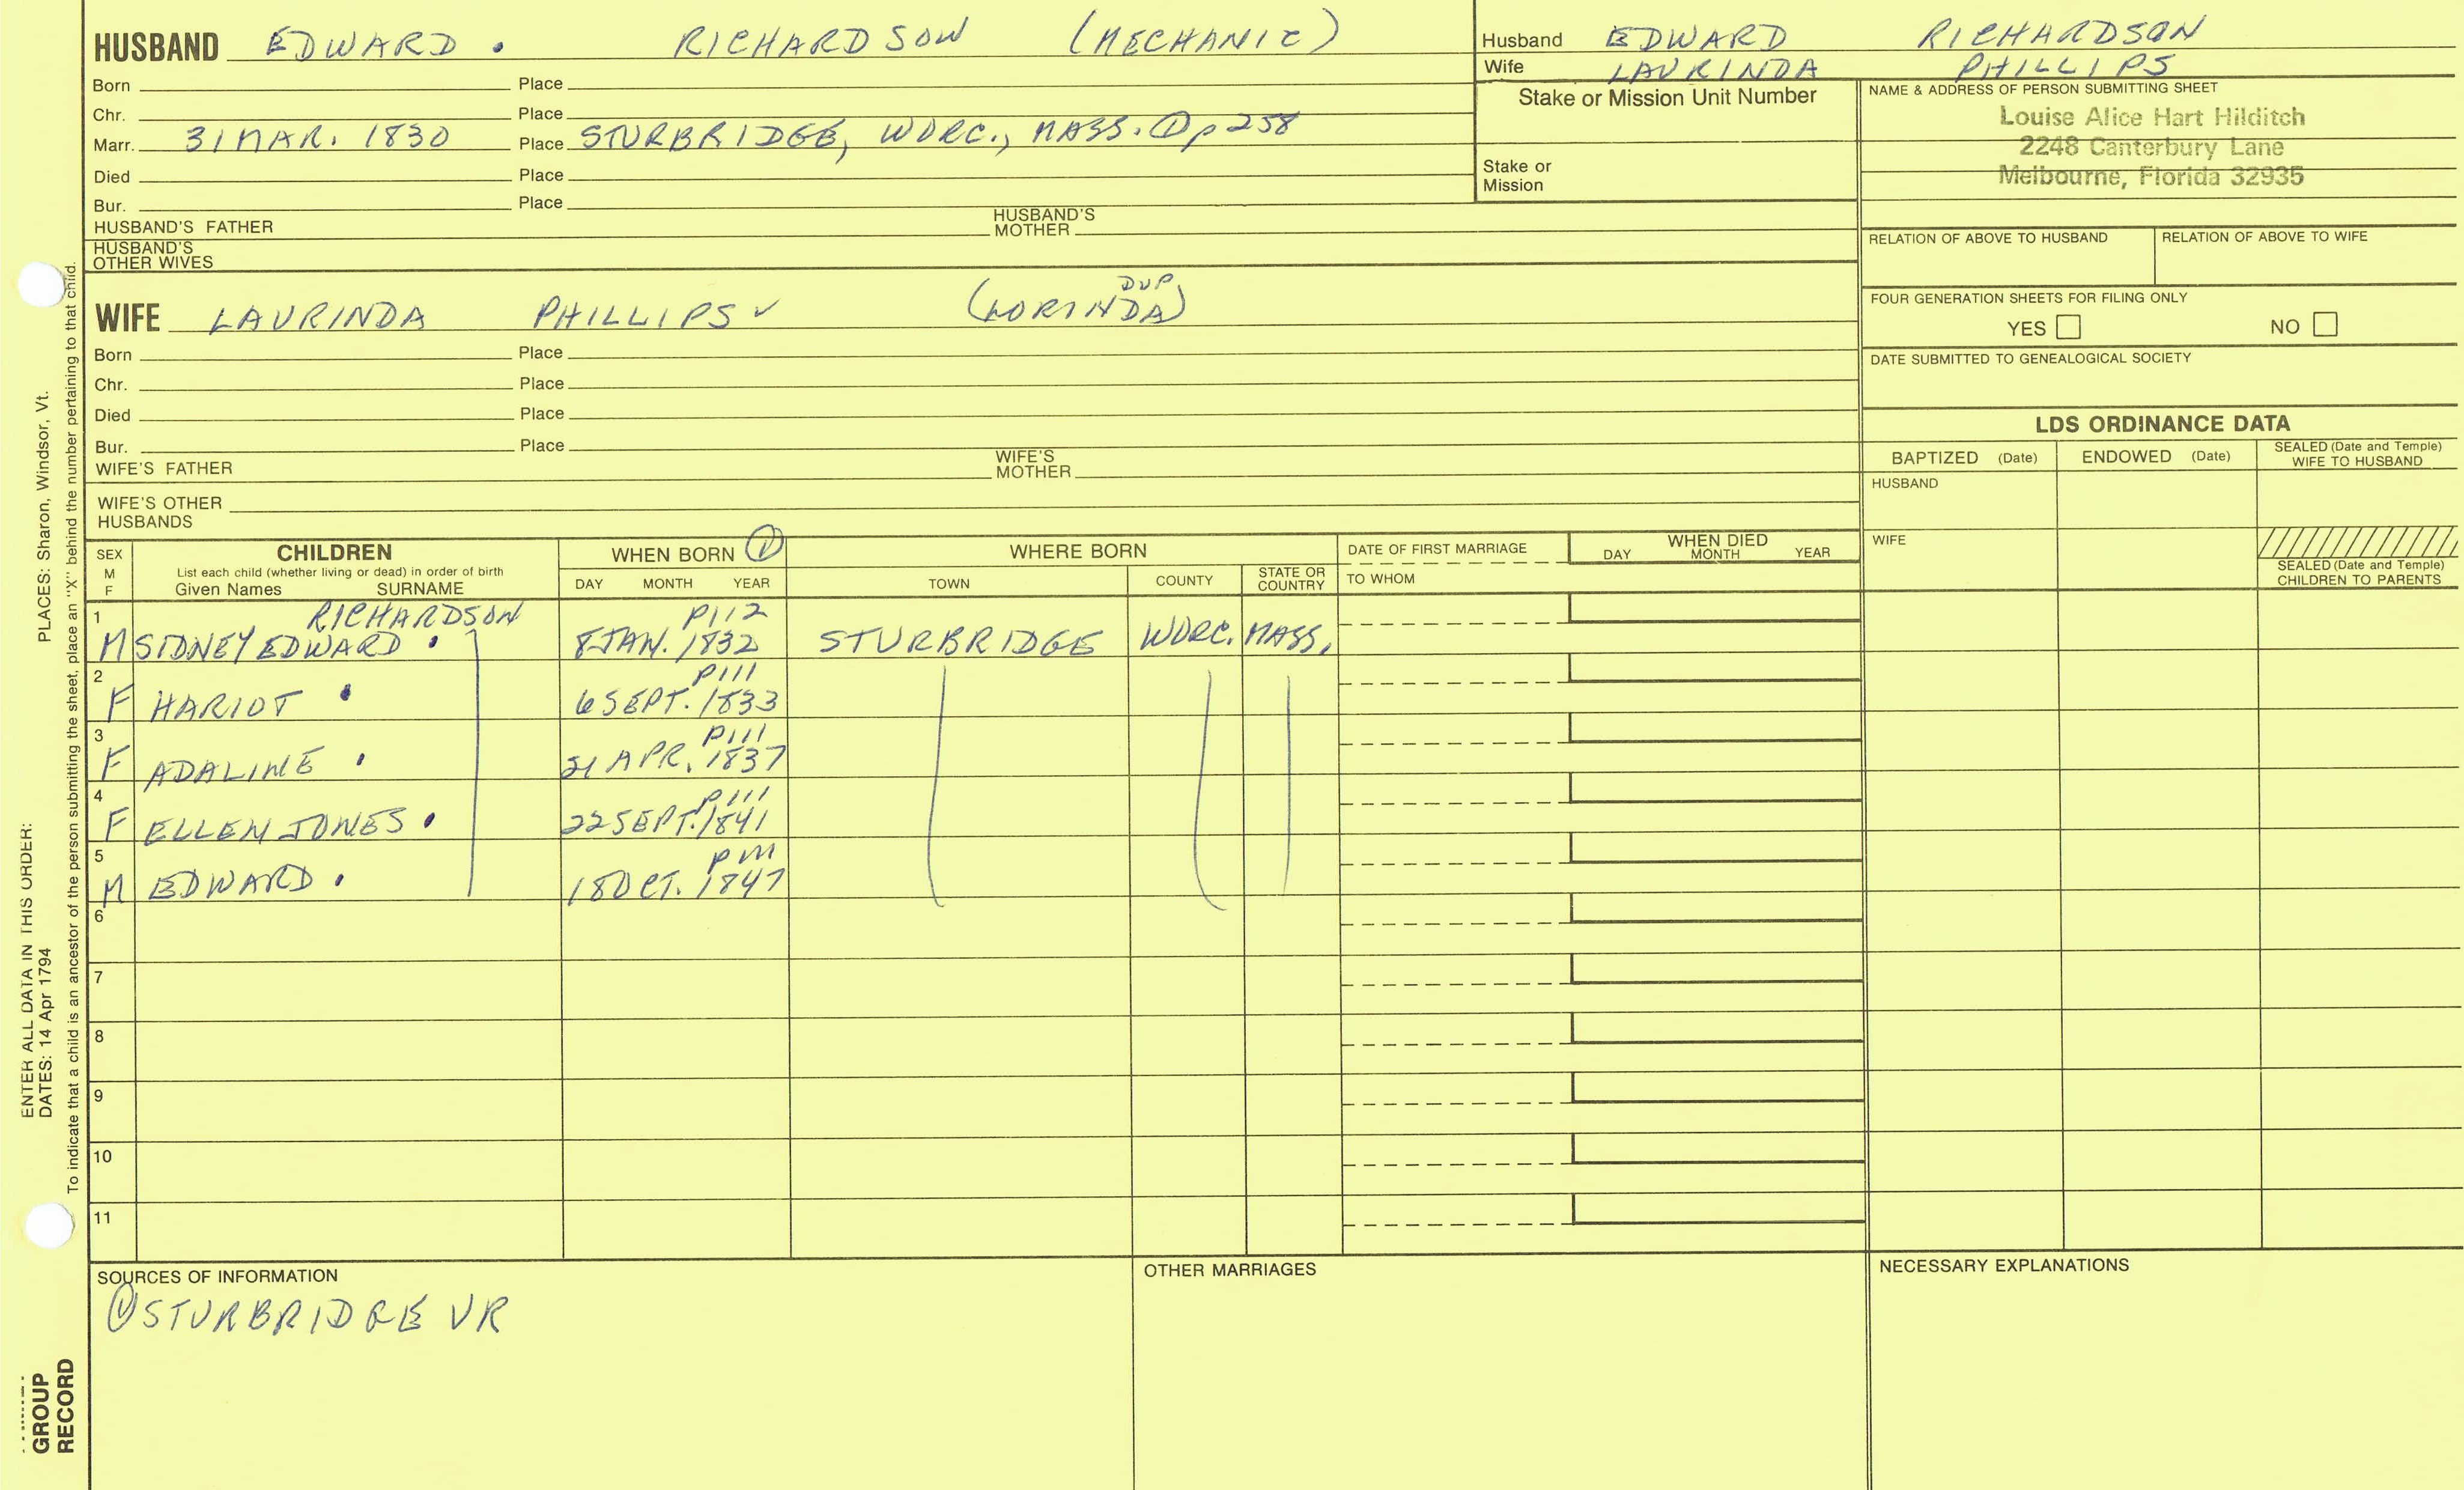 HUSBAND EDWARD . RICHARDSON (MECHANIC)
Born Place
Chr. Place
Marr. 31 MAR. 1830 Place STURBRIDGE, WORC., MASS. ① p 258
Died Place
Bur. Place
HUSBAND'S FATHER HUSBAND'S MOTHER
HUSBAND'S OTHER WIVES
Husband EDWARD RICHARDSON
Wife LAURINDA PHILLIPS
Stake or Mission Unit Number
Stake or Mission
NAME & ADDRESS OF PERSON SUBMITTING SHEET
Louise Alice Hart Hilditch
2248 Canterbury Lane
Melbourne, Florida 32935
RELATION OF ABOVE TO HUSBAND RELATION OF ABOVE TO WIFE
FOUR GENERATION SHEETS FOR FILING ONLY
YES NO
DATE SUBMITTED TO GENEALOGICAL SOCIETY
DUP
WIFE LAURINDA PHILLIPS ✓ (LORINDA)
Born Place
Chr. Place
Died Place
Bur. Place
WIFE'S FATHER WIFE'S MOTHER
WIFE'S OTHER HUSBANDS
LDS ORDINANCE DATA
BAPTIZED (Date) ENDOWED (Date) SEALED (Date and Temple) WIFE TO HUSBAND
HUSBAND
WIFE
SEALED (Date and Temple) CHILDREN TO PARENTS
SEX M F
CHILDREN
List each child (whether living or dead) in order of birth
Given Names SURNAME
WHEN BORN ①
DAY MONTH YEAR
WHERE BORN
TOWN COUNTY STATE OR COUNTRY
DATE OF FIRST MARRIAGE
TO WHOM
WHEN DIED
DAY MONTH YEAR
1 RICHARDSON P112
M SIDNEY EDWARD . 8 JAN. 1832 STURBRIDGE WORC. MASS.
2 P111
F HARIOT . 6 SEPT. 1833
3 P111
F ADALINE . 21 APR. 1837
4 P111
F ELLEN JONES . 22 SEPT. 1841
5 P111
M EDWARD . 18 OCT. 1847
6
7
8
9
10
11
SOURCES OF INFORMATION
① STURBRIDGE VR
OTHER MARRIAGES
NECESSARY EXPLANATIONS
ENTER ALL DATA IN THIS ORDER:
DATES: 14 Apr 1794 PLACES: Sharon, Windsor, Vt.
To indicate that a child is an ancestor of the person submitting the sheet, place an "X" behind the number pertaining to that child.
GROUP
RECORD